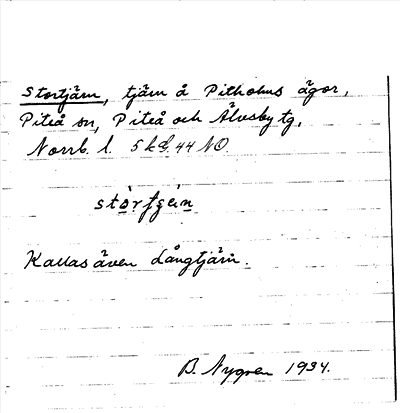 Stortjärn, tjärn å Pitholms ägor,
Piteå sn, Piteå och Älvsby tg,
Norrb. l. 5 kbl. 44 NO.
Kallas även Långtjärn.
B. Nygren 1934.